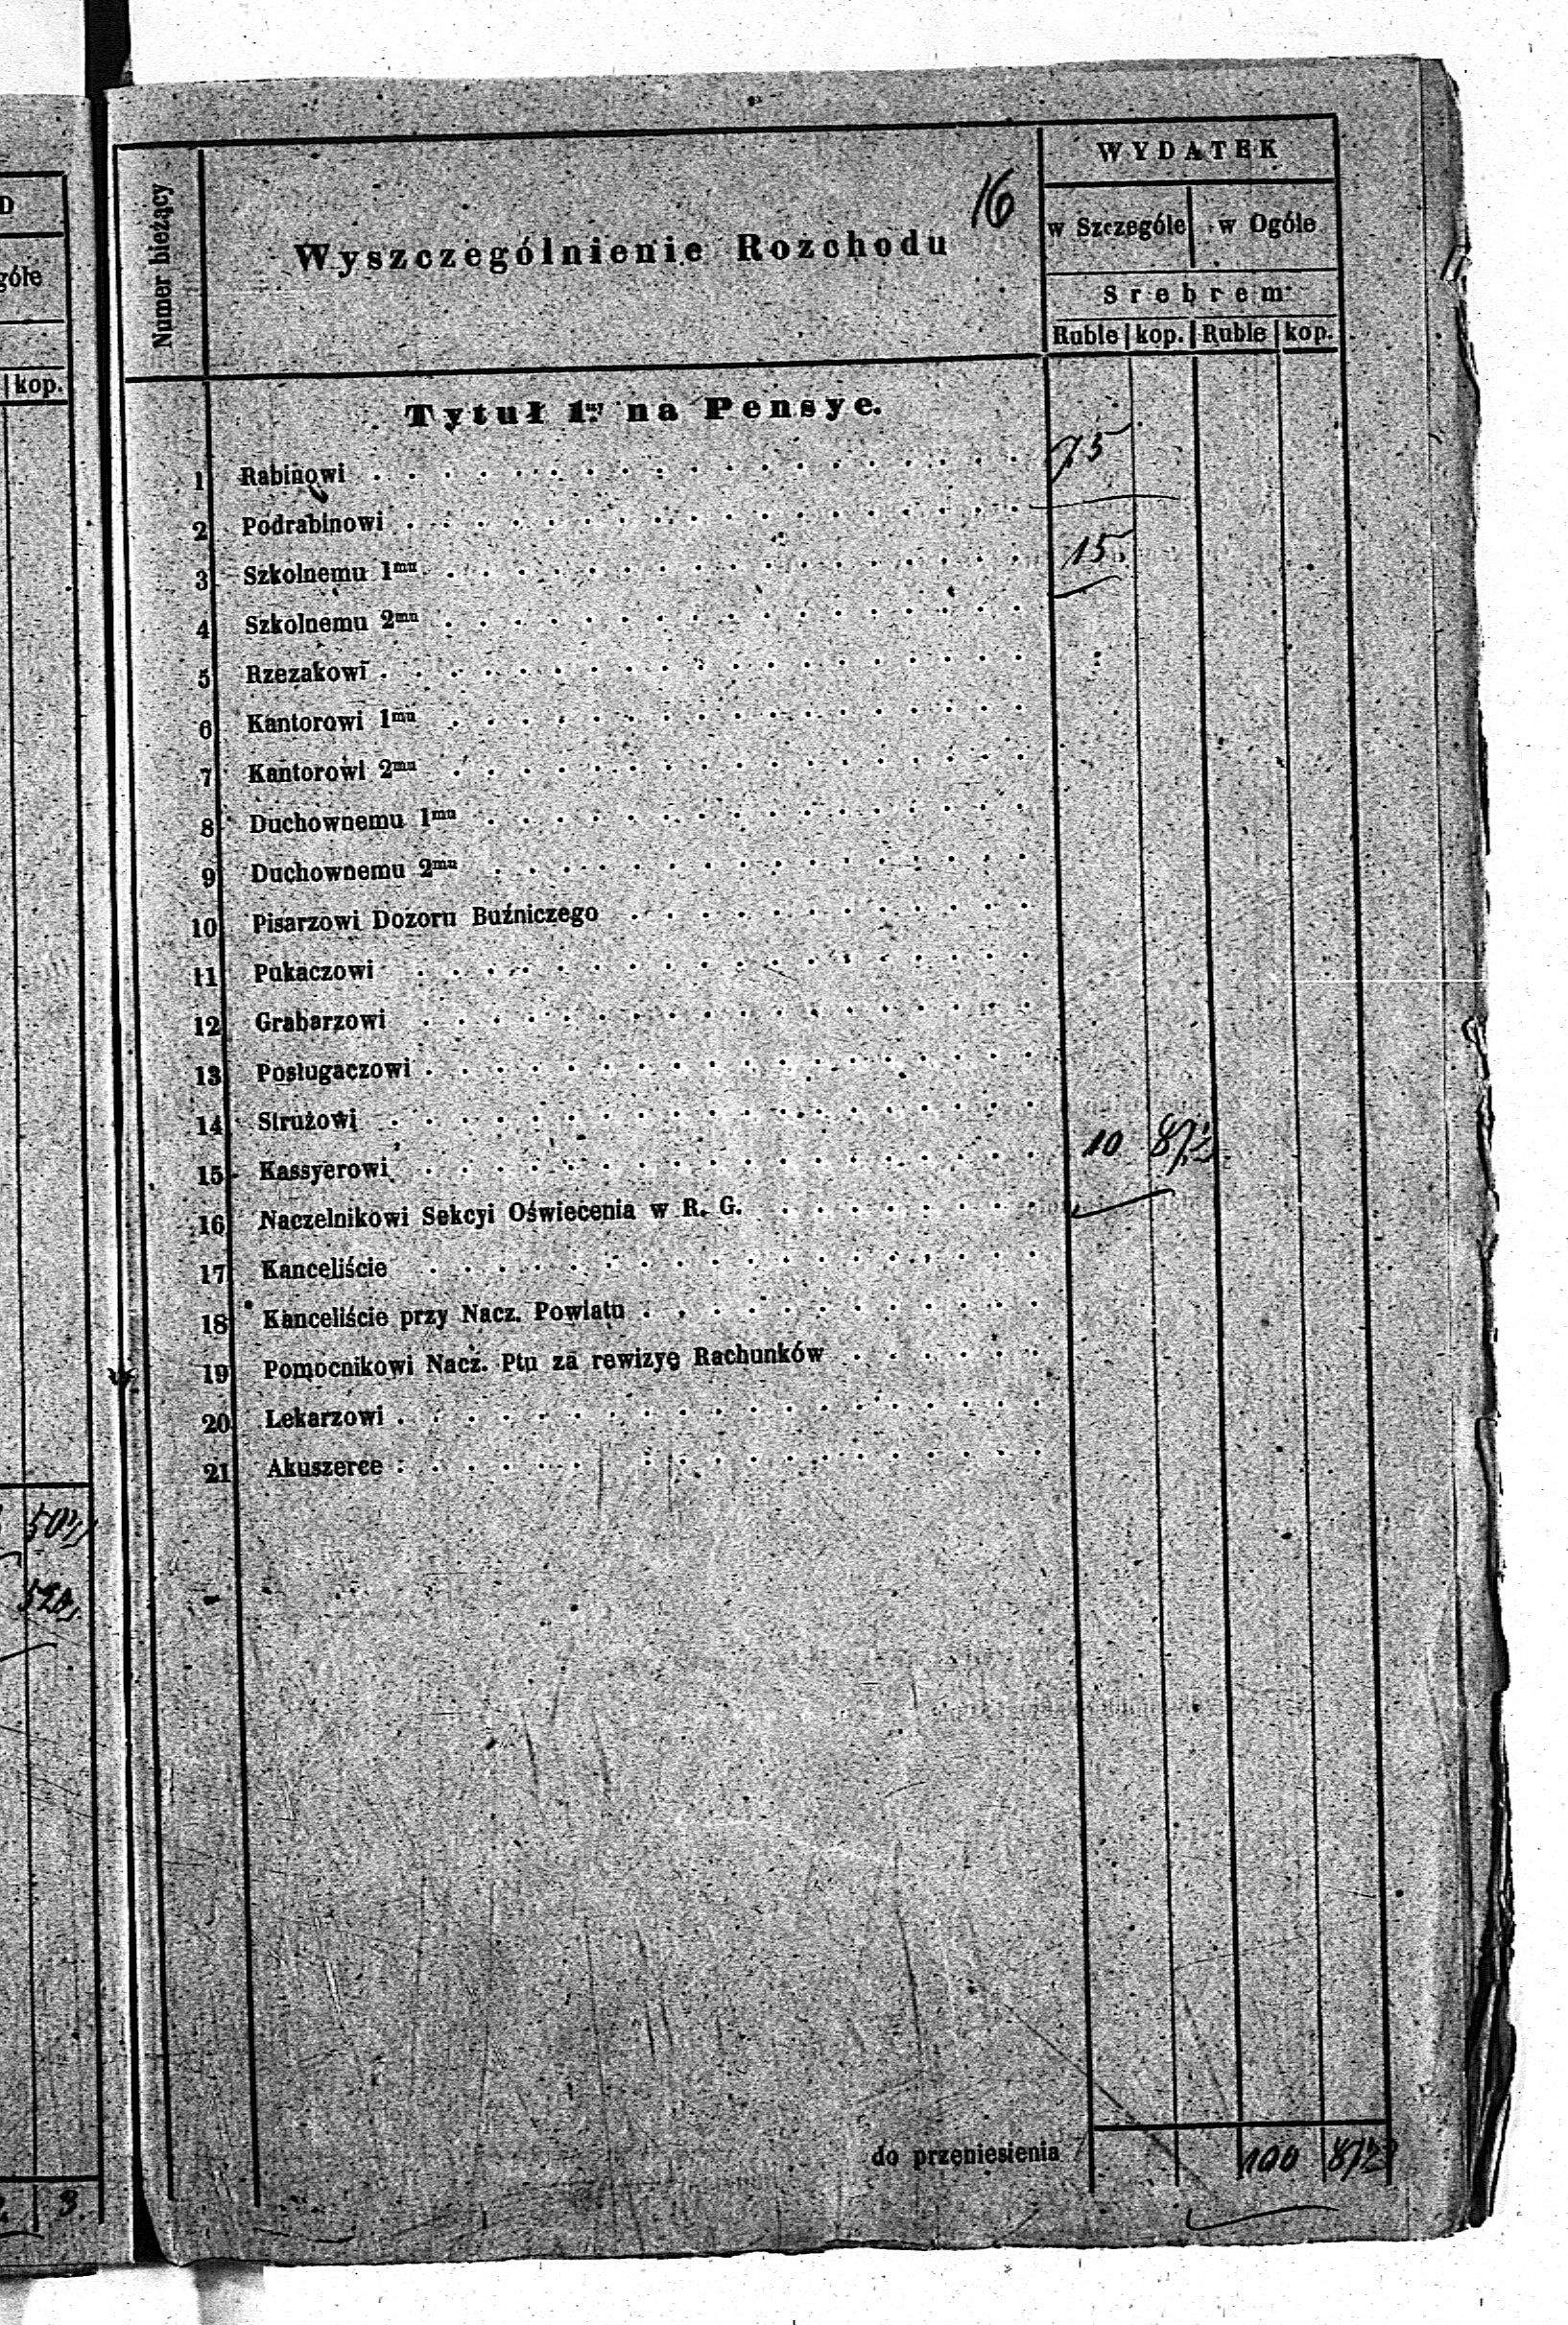 D
góle
kop.
50½
3.
16
11
WYDATEK
Numer bieżący
Wyszczególnienie Rozchodu
w Szczególe w Ogóle
Srebrem
Ruble kop. Ruble kop.
Tytuł 1ny na Pensye.
1 Rabinowi 75
2 Podrabinowi
3 Szkolnemu 1mu 15
4 Szkolnemu 2mu
5 Rzezakowi
6 Kantorowi 1mu
7 Kantorowi 2mu
8 Duchownemu 1mu
9 Duchownemu 2mu
10 Pisarzowi Dozoru Buźniczego
11 Pukaczowi
12 Grabarzowi
13 Posługaczowi
14 Strużowi
15 Kassyerowi 10 87½
16 Naczelnikowi Sekcyi Oświecenia w R. G.
17 Kanceliście
18 Kanceliście przy Nacz. Powiatu
19 Pomocnikowi Nacz. Ptu za rewizyę Rachunków
20 Lekarzowi
21 Akuszerce
do przeniesienia 100 87½